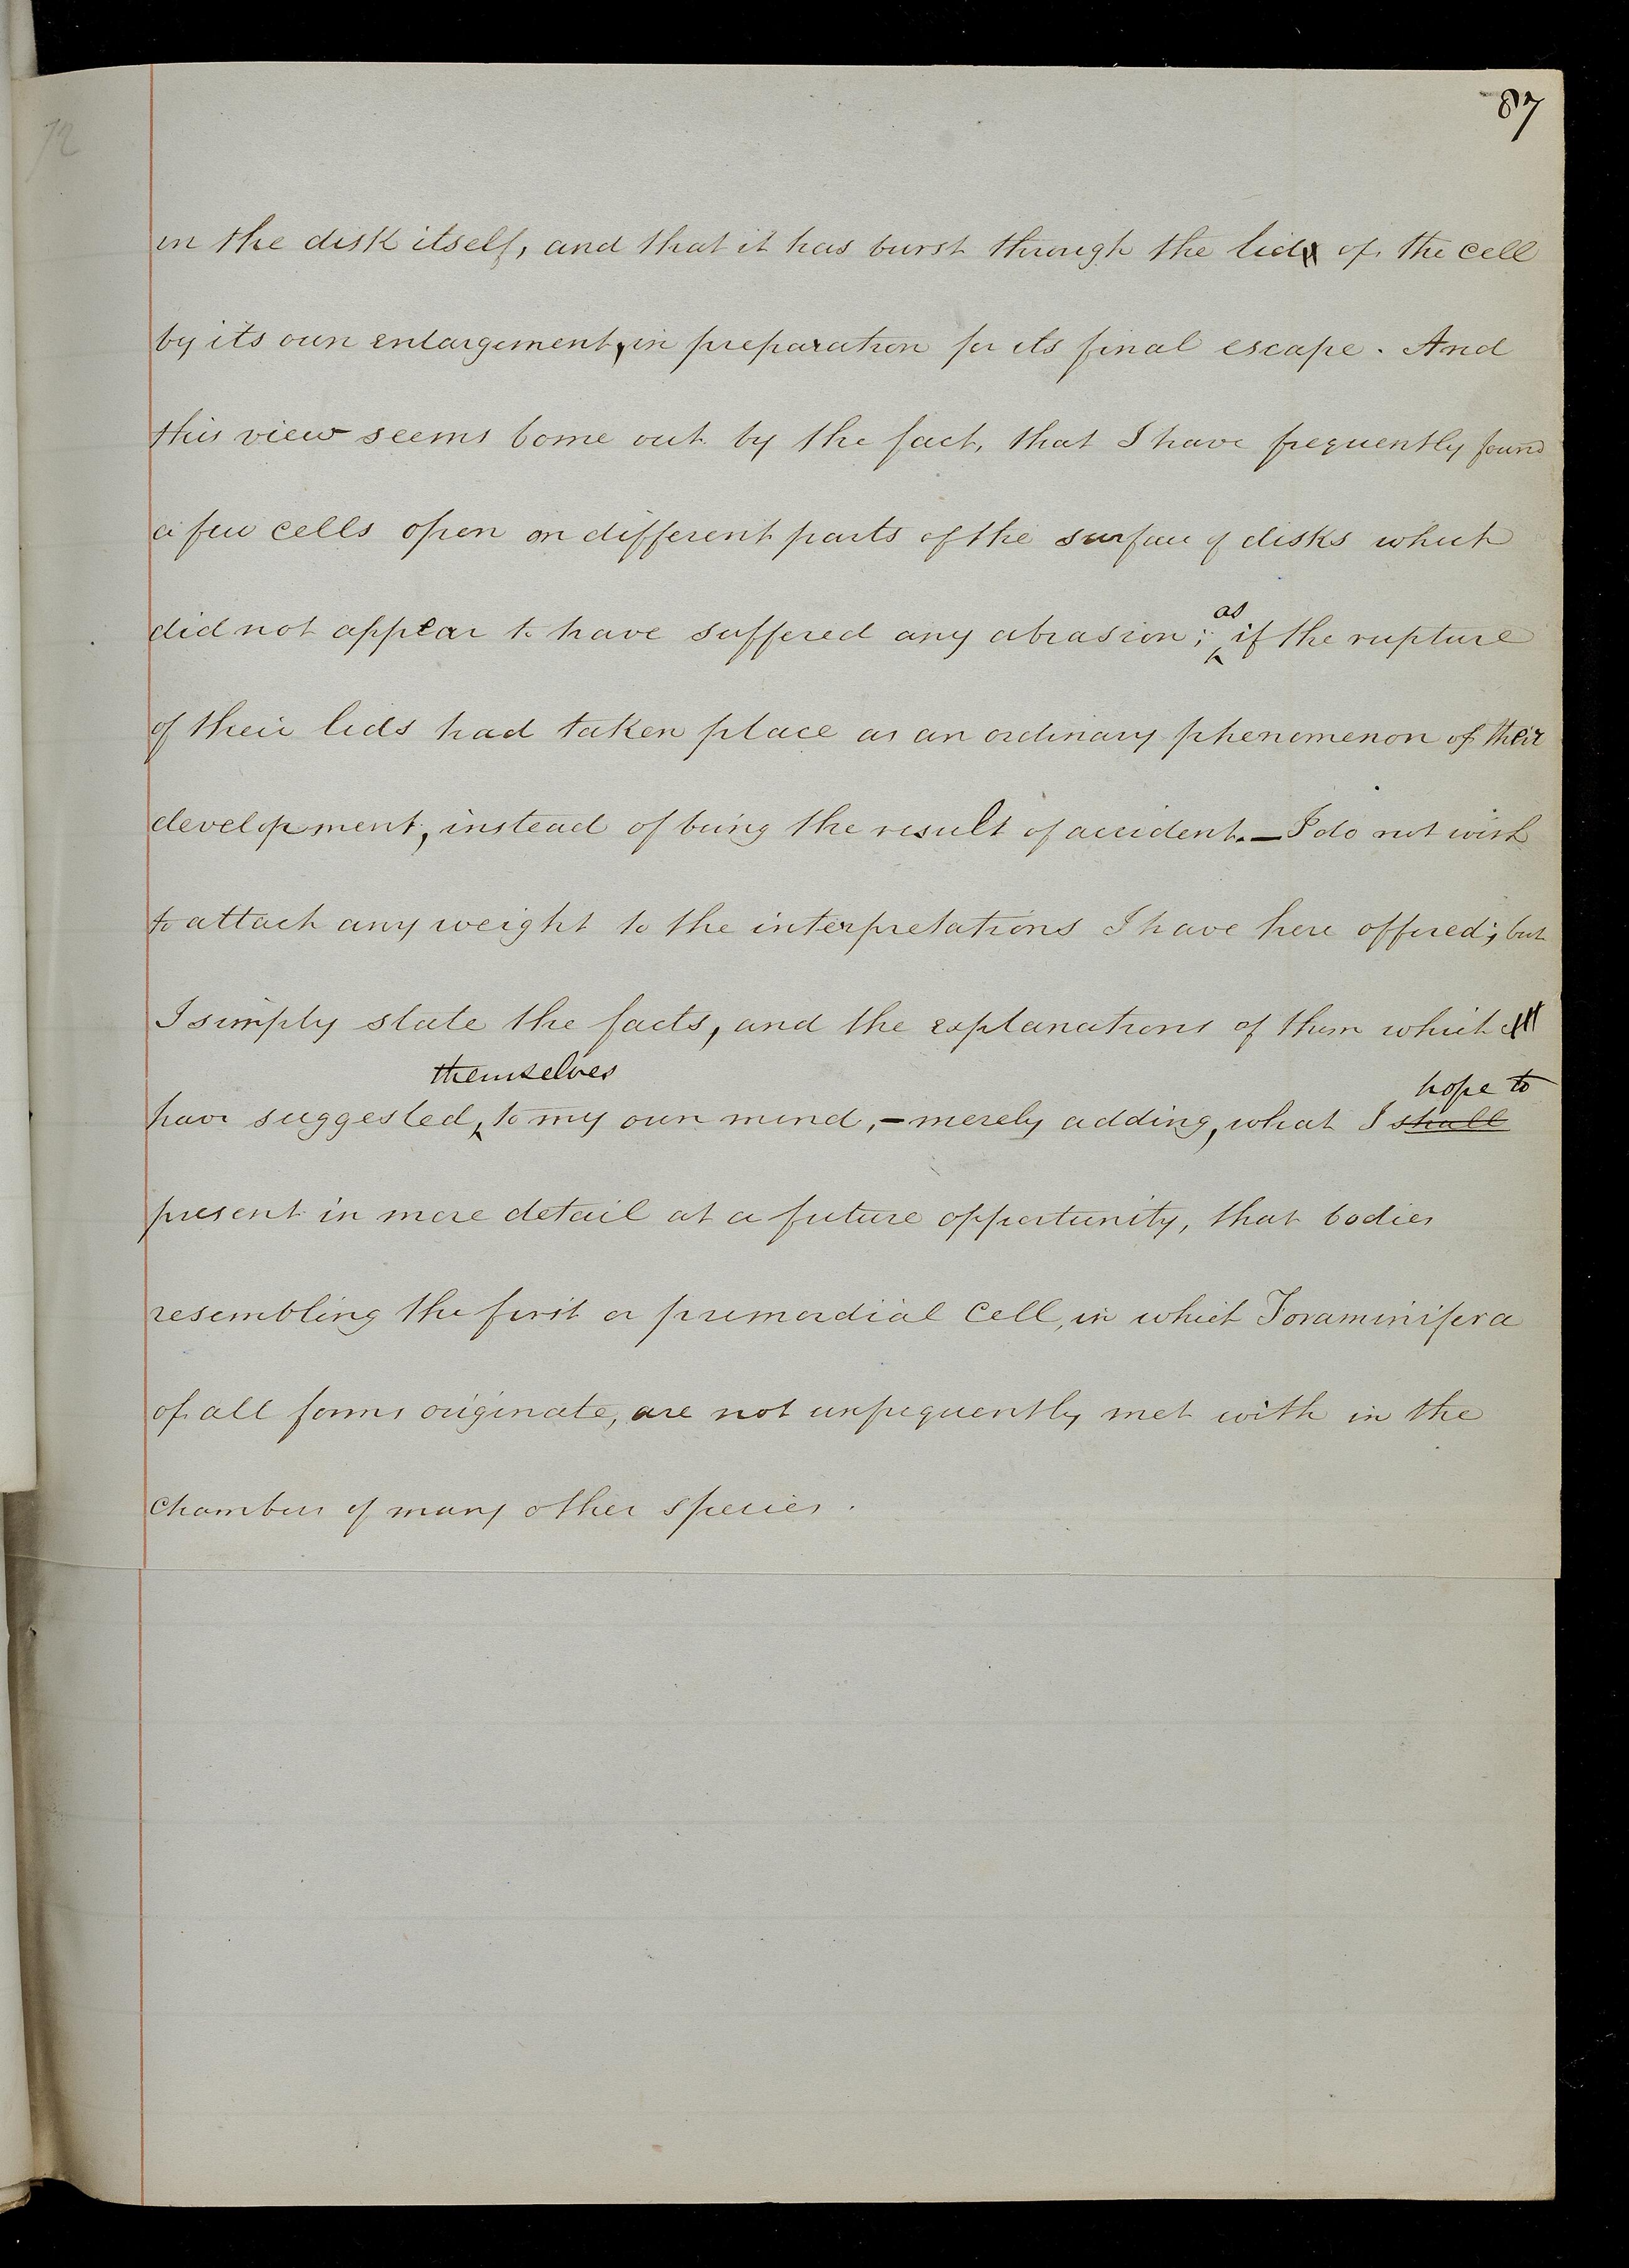 87
72
in the disk itself, and that it has burst through the lid of the cell
by its own enlargement, in preparation for its final escape. And
this view seems borne out by the fact, that I have frequently found
a few cells open on different parts of the surface of disks which
did not appear to have suffered any abrasion; as if the rupture
of their lids had taken place as an ordinary phenomenon of their
development, instead of being the result of accident. — I do not wish
to attach any weight to the interpretations I have here offered; but
I simply state the facts, and the explanations of them which
have suggested themselves to my own mind, - merely adding, what I shall hope to
present in more detail at a future opportunity, that bodies
resembling the first or primordial cell, in which Foraminifera
of all forms originate, are not unfrequently met with in the
chambers of many other species.